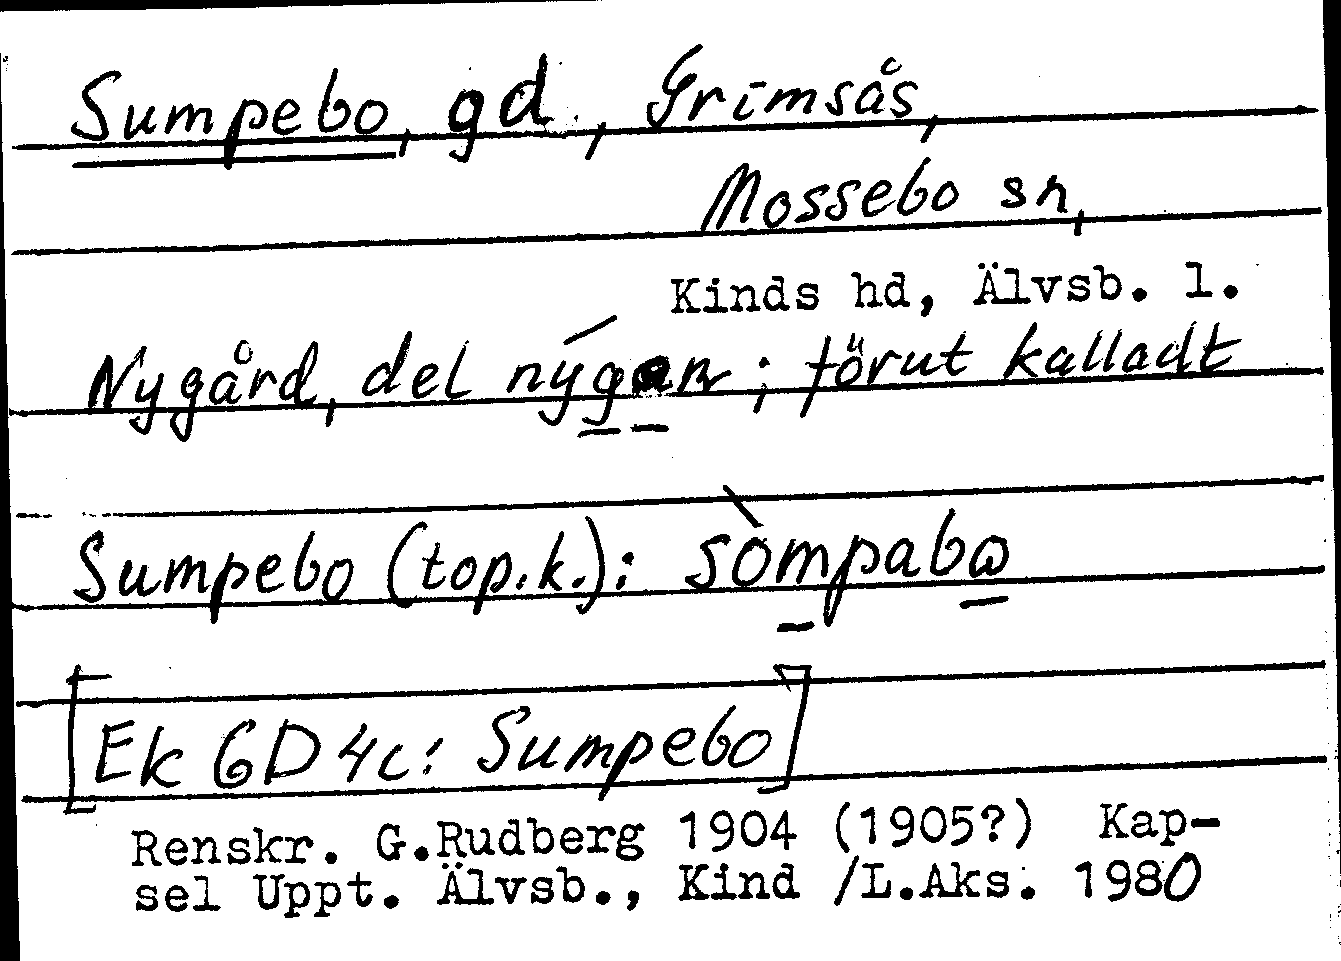 Sumpebo, gd., Grimsås,
Mossebo sn,
Kinds hd, Älvsb. l.
Nygård, del nýgan; förut kalladt
Sumpebo (top.k.): sòmpabo
[Ek 6D 4c: Sumpebo]
Renskr. G.Rudberg 1904 (1905?) Kap-
sel Uppt. Älvsb., Kind /L.Aks. 1980